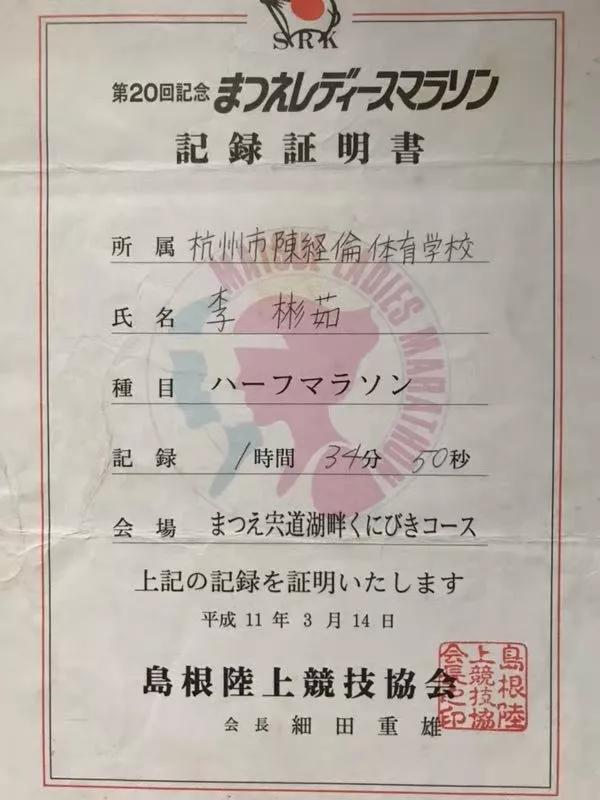 SRK
第20回記念 まつえレディースマラソン
記録証明書
MATSUE LADIES MARATHON
所属 杭州市陳経倫体育学校
氏名 李 彬茹
種目 ハーフマラソン
記録 1時間 34分 50秒
会場 まつえ宍道湖畔くにびきコース
上記の記録を証明いたします
平成11年3月14日
島根陸上競技協会
会長 細田重雄
島根陸
上競技協
会長之印